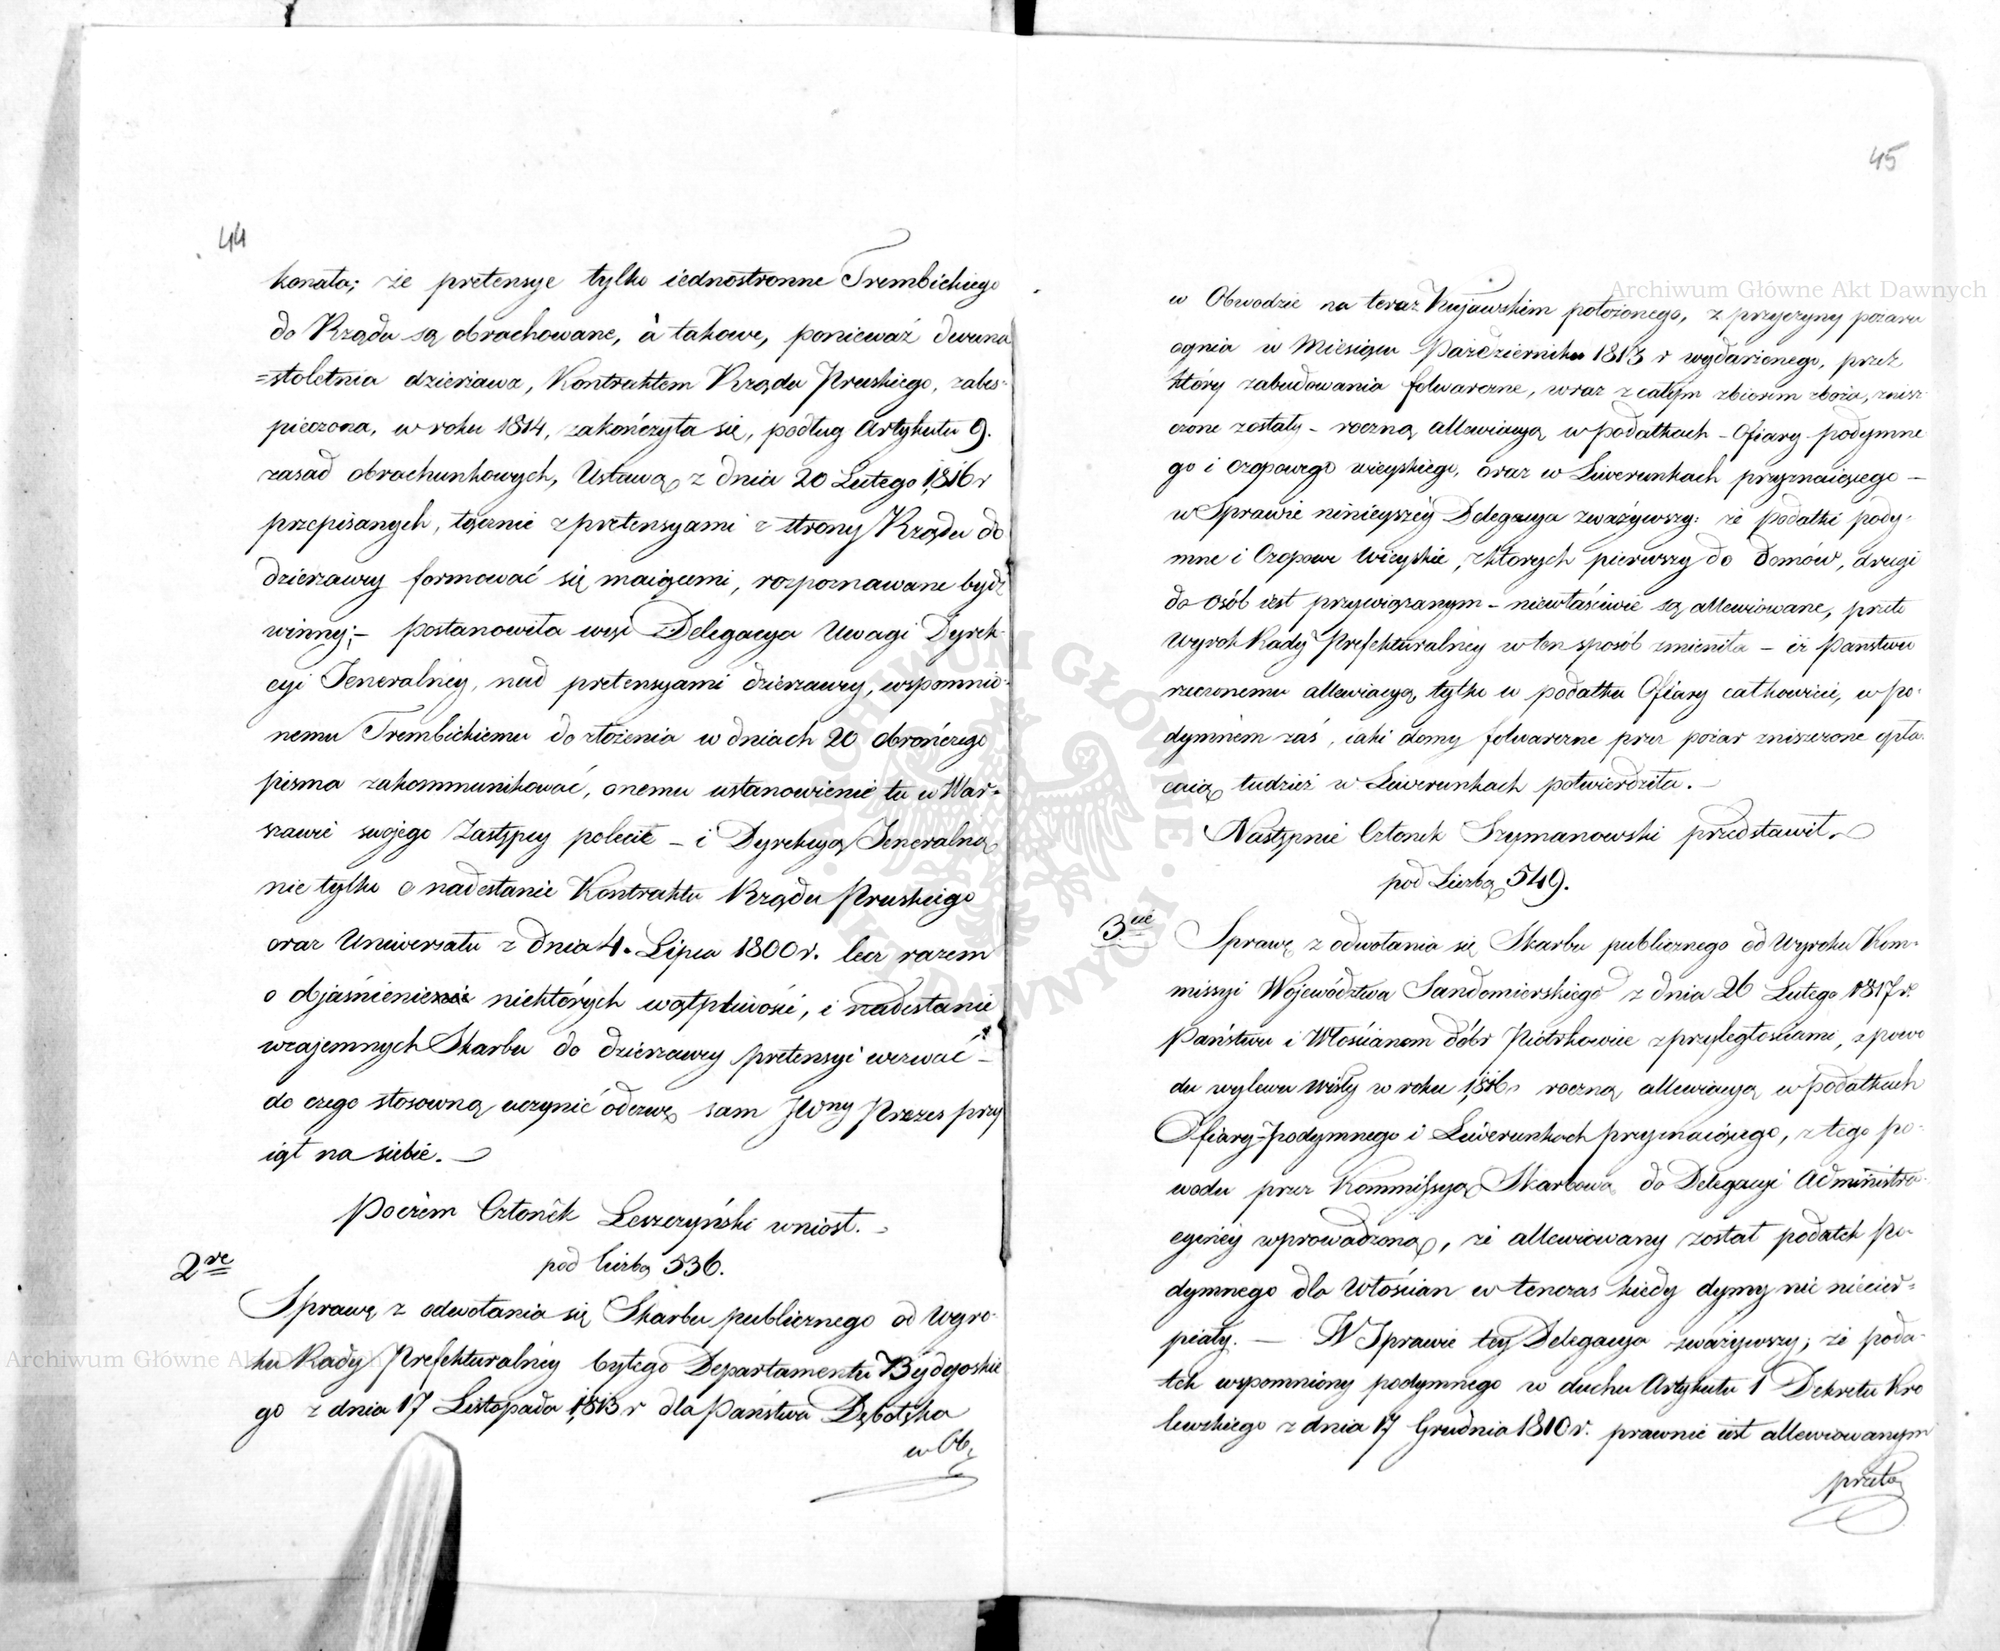 44
konała; że pretensye tylko iednostronne Trembickiego
do Rządu są obrachowane, à takowe, ponieważ dwuna
=stoletnia dzierżawa, Kontraktem Rządu Pruskiego, zabes-
pieczona, w roku 1814, zakończyła się, podług Artykułu 9.
zasad obrachunkowych, Ustawą z dnia 20 Lutego 1816 r
przepisanych, łącznie z pretensyami z strony Rządu do
dzierżawy formować się maiącemi, rozpoznawane bydź
winny; – postanowiła więc Delegacya Uwagi Dyrek-
cyi Jeneralnéy, nad pretensyami dzierżawcy, wspomnio-
nemu Trembickiemu do złożenia w dniach 20 obrończego
pisma zakommunikować, onemu ustanowienie tu w War-
szawie swojego Zastępcy polecić – i Dyrekcyą Jeneralną
nie tylko o nadesłanie Kontraktu Rządu Pruskiego
oraz Uniwersału z dnia 4. Lipca 1800 r. lecz razem
o objaśnienie niektórych wątpliwości, i nadesłanie
wzajemnych Skarbu do dzierżawcy pretensyi wezwać –
do czego stosowną uczynić odezwę sam JWny Prezes przy
iął na siebie. –
Poczém Członék Leszczyński wniósł. –
pod liczbą 536.
2re
Sprawę z odwołania się Skarbu publicznego od Wyro-
ku Rady Prefekturalnéy byłego Departamentu Bydgoskie
go z dnia 17 Listopada 1813 r dla Państwa Dębołęka
w Ob.
45
w Obwodzie na teraz Kujawskim położonego, z przyczyny pożaru
ognia w Miesiącu Październiku 1813 r wydarzonego, przez
który zabudowania folwarczne, wraz z całym zbiorem zboża, znisz-
czone zostały – roczną allewiacyą w podatkach – Ofiary podymne
go i czopowego wieyskiego, oraz w Liwerunkach przyznaiącego –
w Sprawie ninieyszéy Delegacya zważywszy: że podatki pody-
mne i Czopowe Wieyskie, z których pierwszy do domów, drugi
do osób iest przywiązanym – niewłaściwie są allewiowane, przeto
Wyrok Rady Prefekturalnéy w ten sposób zmieniła – iż Państwu
rzeczonemu allewiacyą tylko w podatku Ofiary całkowicie, w po-
dymném zaś, iaki domy folwarczne przez pożar zniszczone opła-
caią tudzież w Liwerunkach potwierdziła. –
Następnie Członek Szymanowski przedstawił. –
pod Liczbą 549.
3cie
Sprawę z odwołania się Skarbu publicznego od Wyroku Kom-
missyi Województwa Sandomierskiego z dnia 26 Lutego 1817 r.
Państwu i Włościanom dóbr Piotrkowice z przyległościami, z powo
du wylewu Wisły w roku 1816 roczną allewiacyą w podatkach
Ofiary – podymnego i Liwerunkach przyznaiącego, z tego po-
wodu przez Kommissyą Skarbową do Delegacyi Administra-
cyinéy wprowadzoną, że allewiowany został podatek po-
dymnego dla Włościan w tenczas kiedy dymy nic niecier-
piały. – W Sprawie tey Delegacya zważywszy; że poda-
tek wspomniony podymnego w duchu Artykułu 1 Dekretu Kró
lewskiego z dnia 17 Grudnia 1810 r. prawnie iest allewiowanym
przeto
Archiwum Główne Akt Dawnych
Archiwum Główne Akt Dawnych
ARCHIWUM GŁÓWNE AKT DAWNYCH